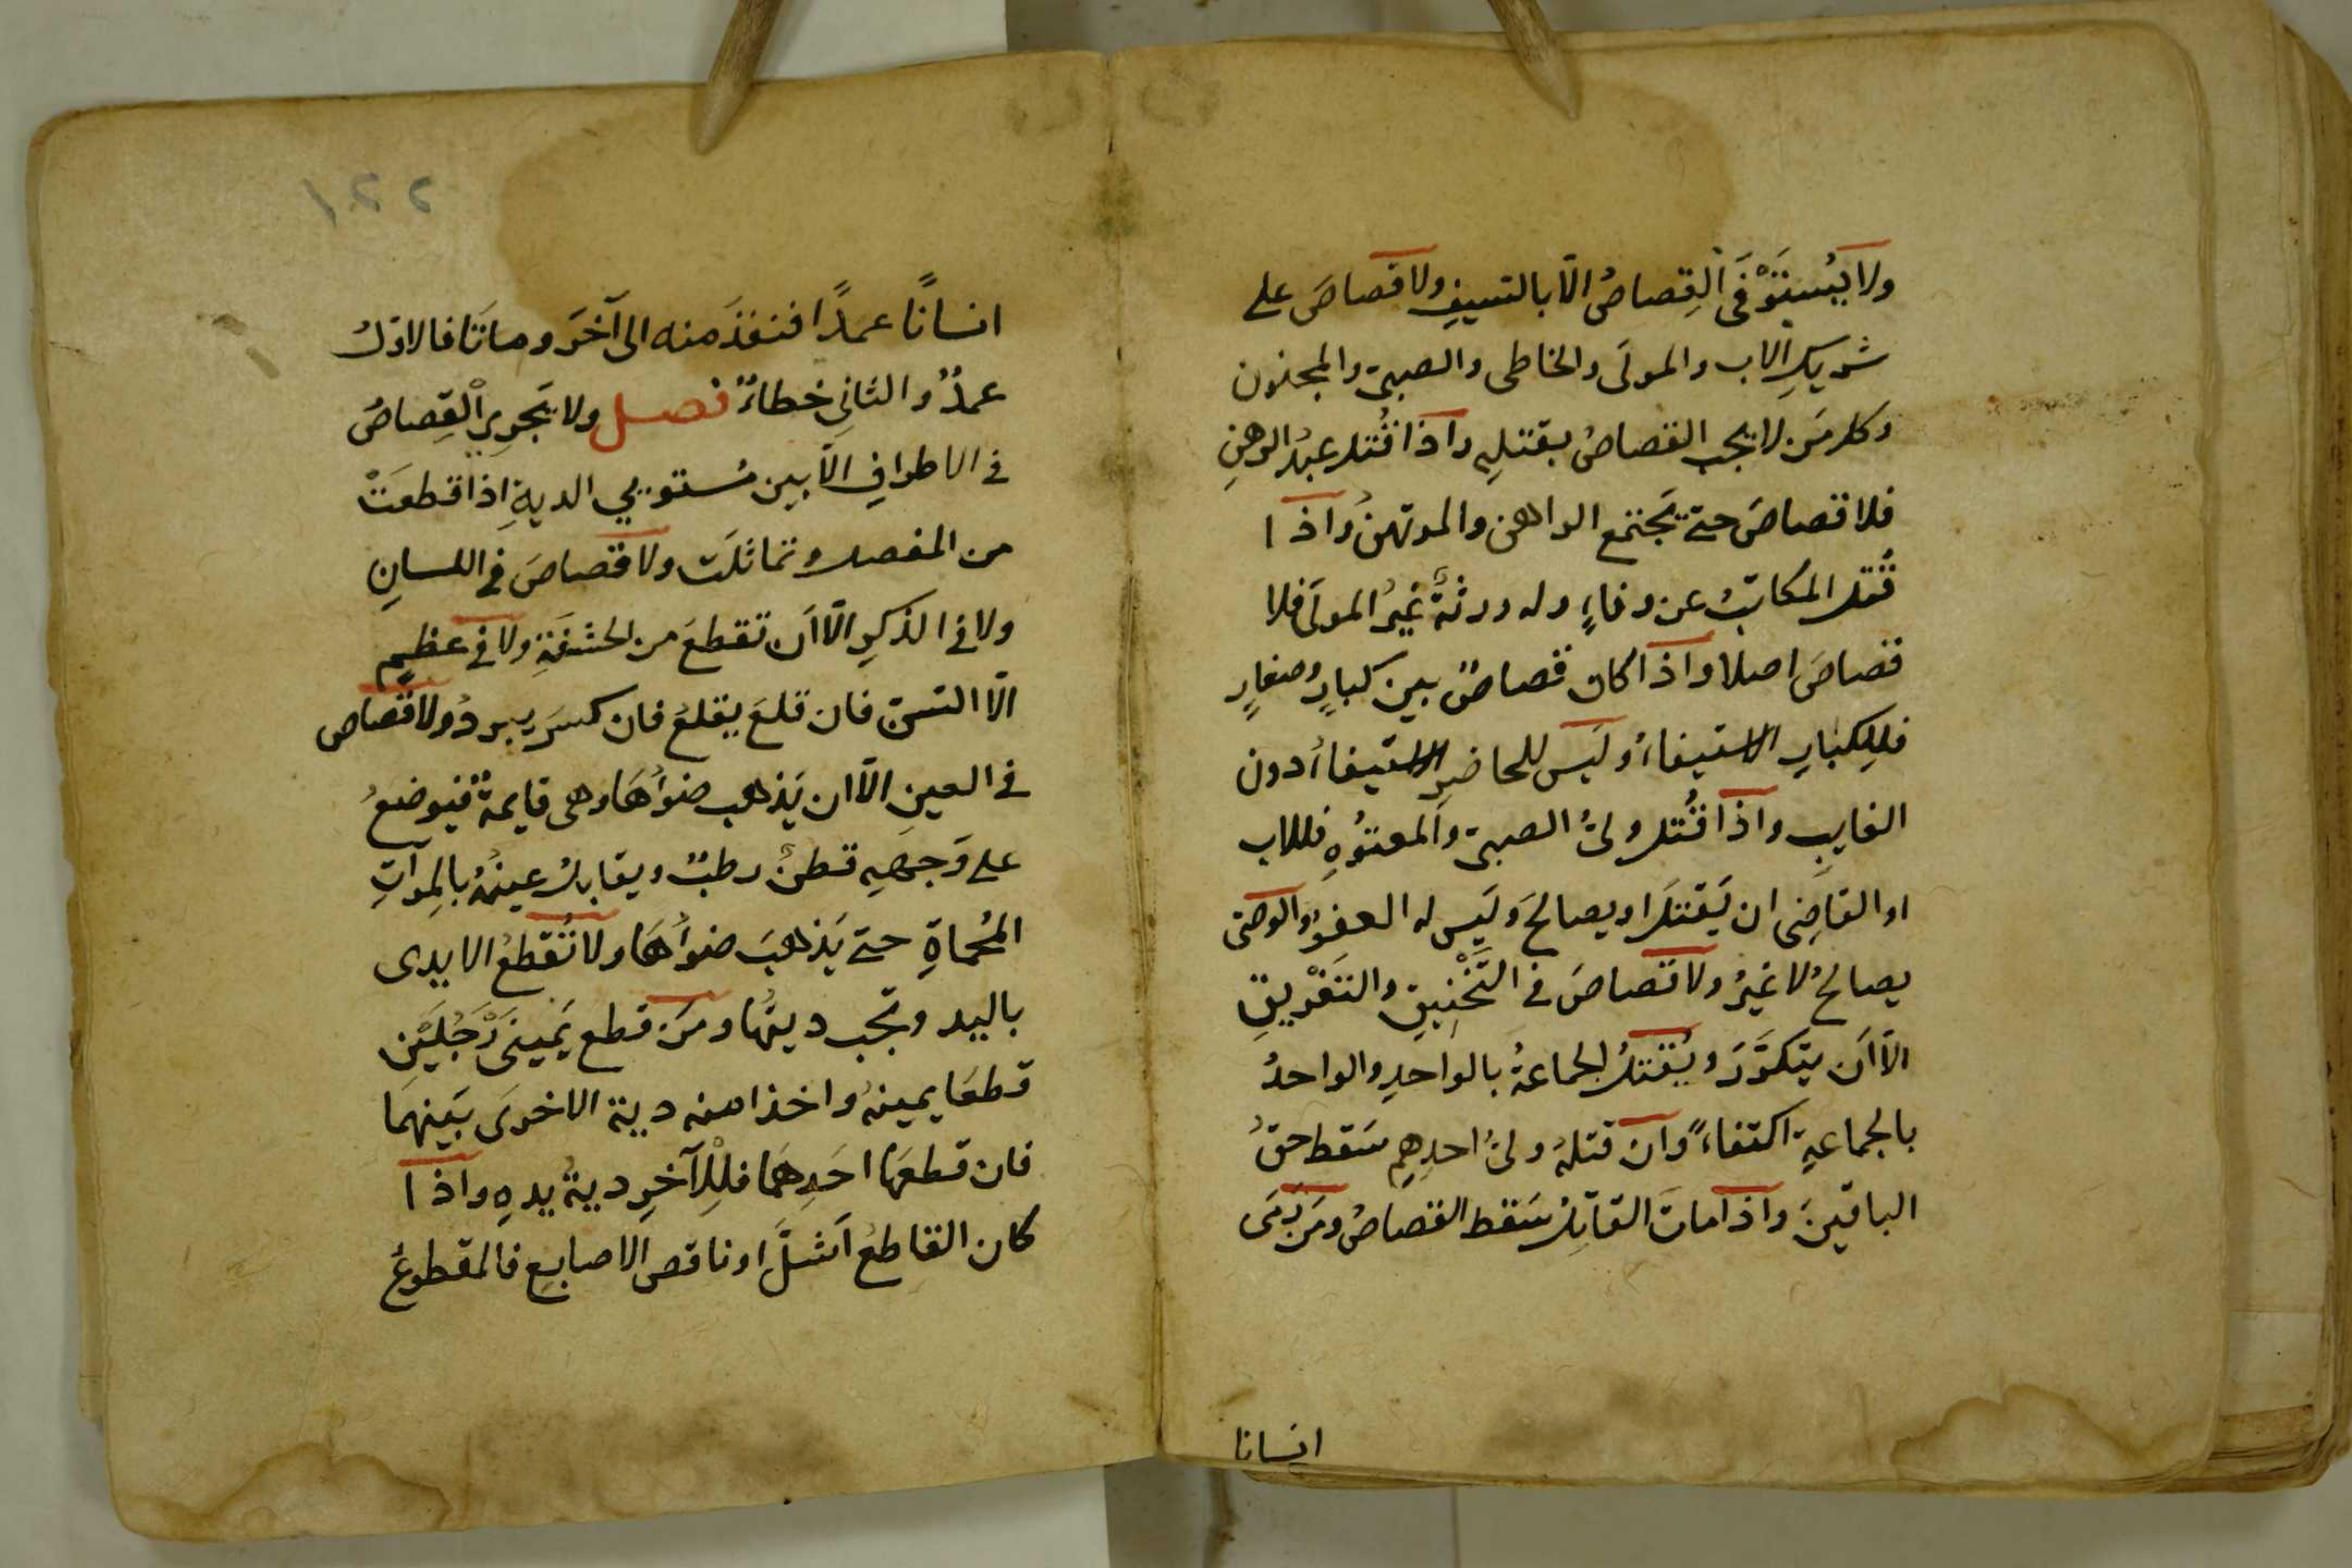 ولا يُسْتَوْفَى الْقِصاصُ الّا بالسيفِ ولا قصاصَ على
شريكِ الاب والمولَى والخاطى والصبىّ والمجنون
وكل مَن لا يجب القصاصُ بقتلِهِ واذا قُتل عبدُ الرهنِ
فلا قصاصَ حتى يَجتمع الراهن والمرتهنُ واذا
قُتل المكاتبُ عن وفاءٍ وله ورثةٌ غيرُ المولَى فلا
قصاصَ اصلا واذا كان قصاصٌ بين كبارٍ وصغارٍ
فللِكبارِ الاستيفاءُ وليَس للحاضرِ الاستيفاءُ دون
الغايبِ واذا قُتل ولىُّ الصبىّ والمعتوُهِ فللاب
او القاضِى ان يَقتلَ او يصالحَ وليَس له العفوُ والوصّى
يصالحُ لا غيرُ ولا قصاصَ فى التَّخْنِيقِ والتَغْريقِ
الّا اَن يتكرَّرَ ويُقتلُ الجماعةُ بالواحدِ والواحدُ
بالجماعةِ اكتفاءً وان قتلهُ ولىُّ احدِهِم سَقط حقُّ
الباقينَ واذا ماتَ القاتِلُ سَقط القصاصُ ومَن رَمَى
انسانا
١٢٢
انسانًا عمدًا فنفذَ منه الى آخَر وماتَا فالاوّلُ
عمدٌ والثانِى خطاءٌ فصل ولا يَجرِى الْقِصاصُ
فى الاطرافِ الّا بين مُستويي الديةِ اذا قطعَتْ
من المفصل وتماثلَت ولا قصاصَ فى اللسانِ
ولا فى الذكرِ الّا اَن تقطعَ من الحشفَةِ ولا فى عظمٍ
الّا السّنّ فان قلعَ يقلعُ فان كسرَ يبردُ ولا قصاص
فى العينِ الّا ان يَذهب ضوأُهَا وهى قايمةٌ فيوضعُ
على وَجهِهِ قطنٌ رطبٌ ويقابلُ عينهُ بالمِرآتِ
المُحماةِ حتى يَذهبَ ضوأُهَا ولا تُقطعُ الايدى
باليد وتجب ديتُها ومَن قطع يَمينَى رَجُلَيْن
قطعَا يمينهُ واخذا منه دية الاخرَى بَينهمَا
فان قطعهَا احَدهمَا فللْآخرِ ديةُ يدهِ واذا
كان القاطعُ اَشلَّ او ناقص الاصابعِ فالمقطوعُ